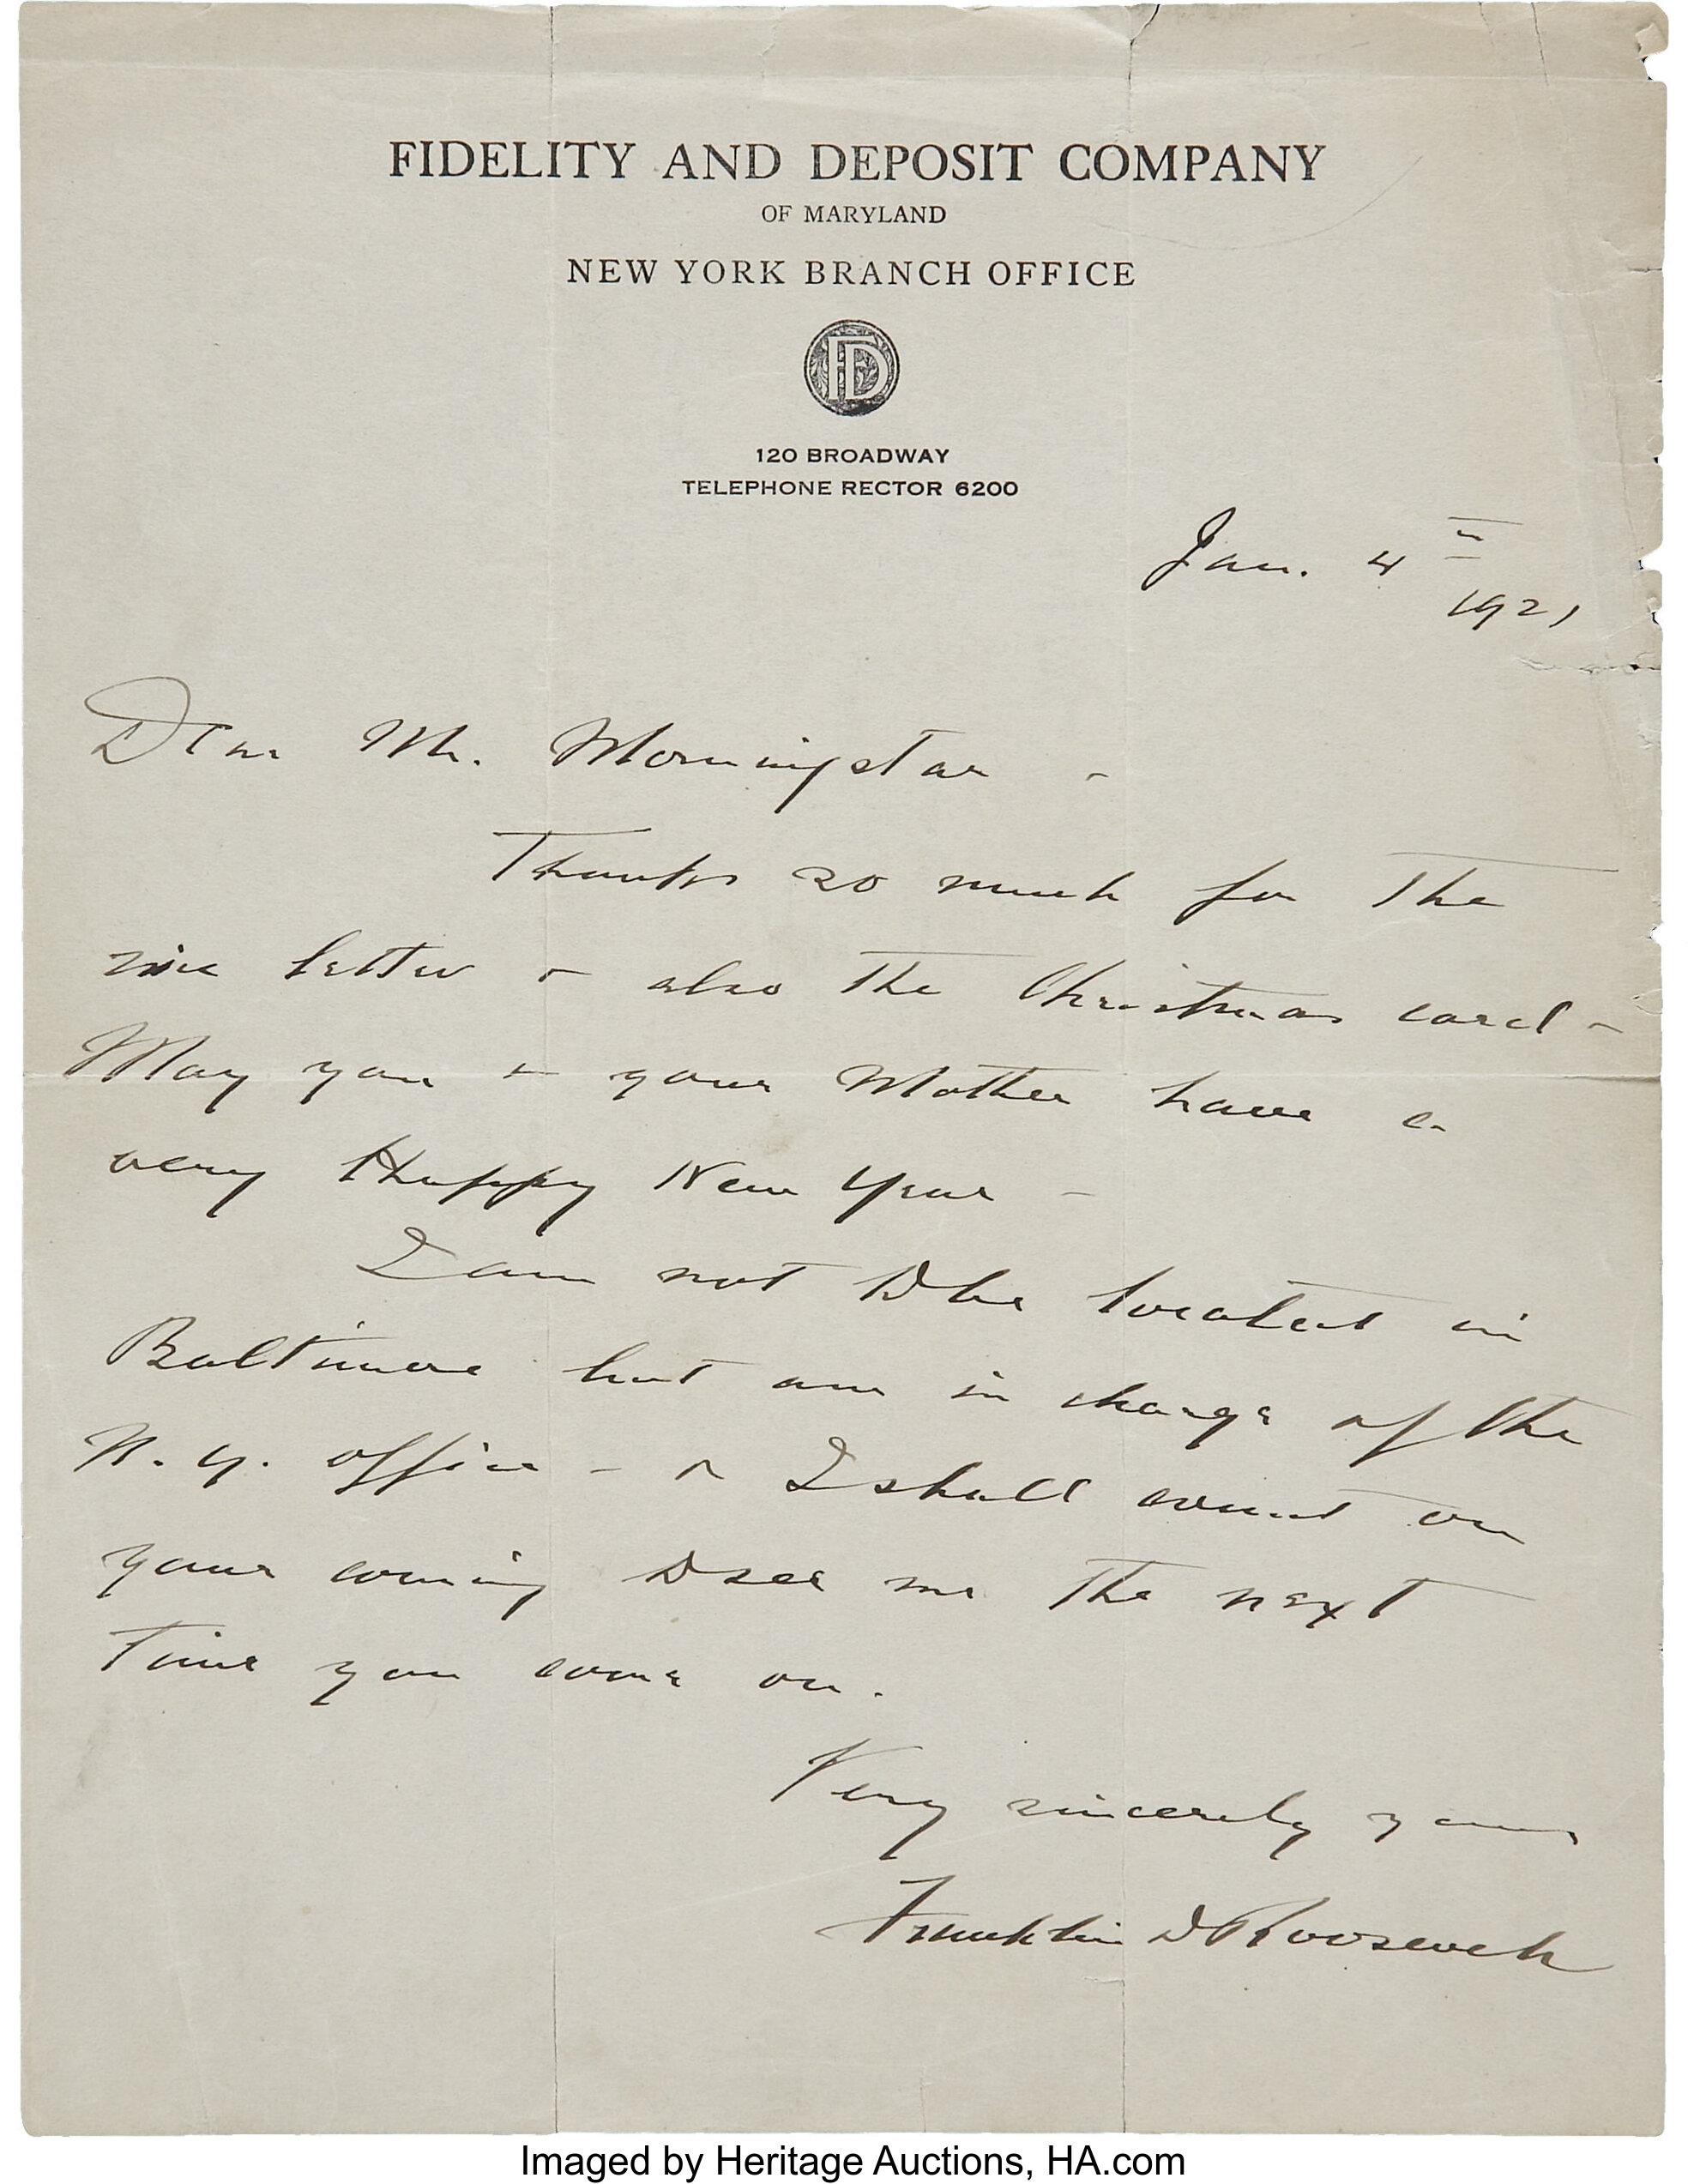 FIDELITY AND DEPOSIT COMPANY
OF MARYLAND
NEW YORK BRANCH OFFICE
FD
120 BROADWAY
TELEPHONE RECTOR 6200
Jan. 4th
1921
Dear Mr. Morningstar -
Thanks so much for the
nice letter & also the Christmas card -
May you & your Mother have a
very Happy New Year -
I am not to be located in
Baltimore but am in charge of the
N.Y. office - & I shall count on
your coming to see me the next
time you come on.
Very sincerely yours
Franklin D Roosevelt
Imaged by Heritage Auctions, HA.com